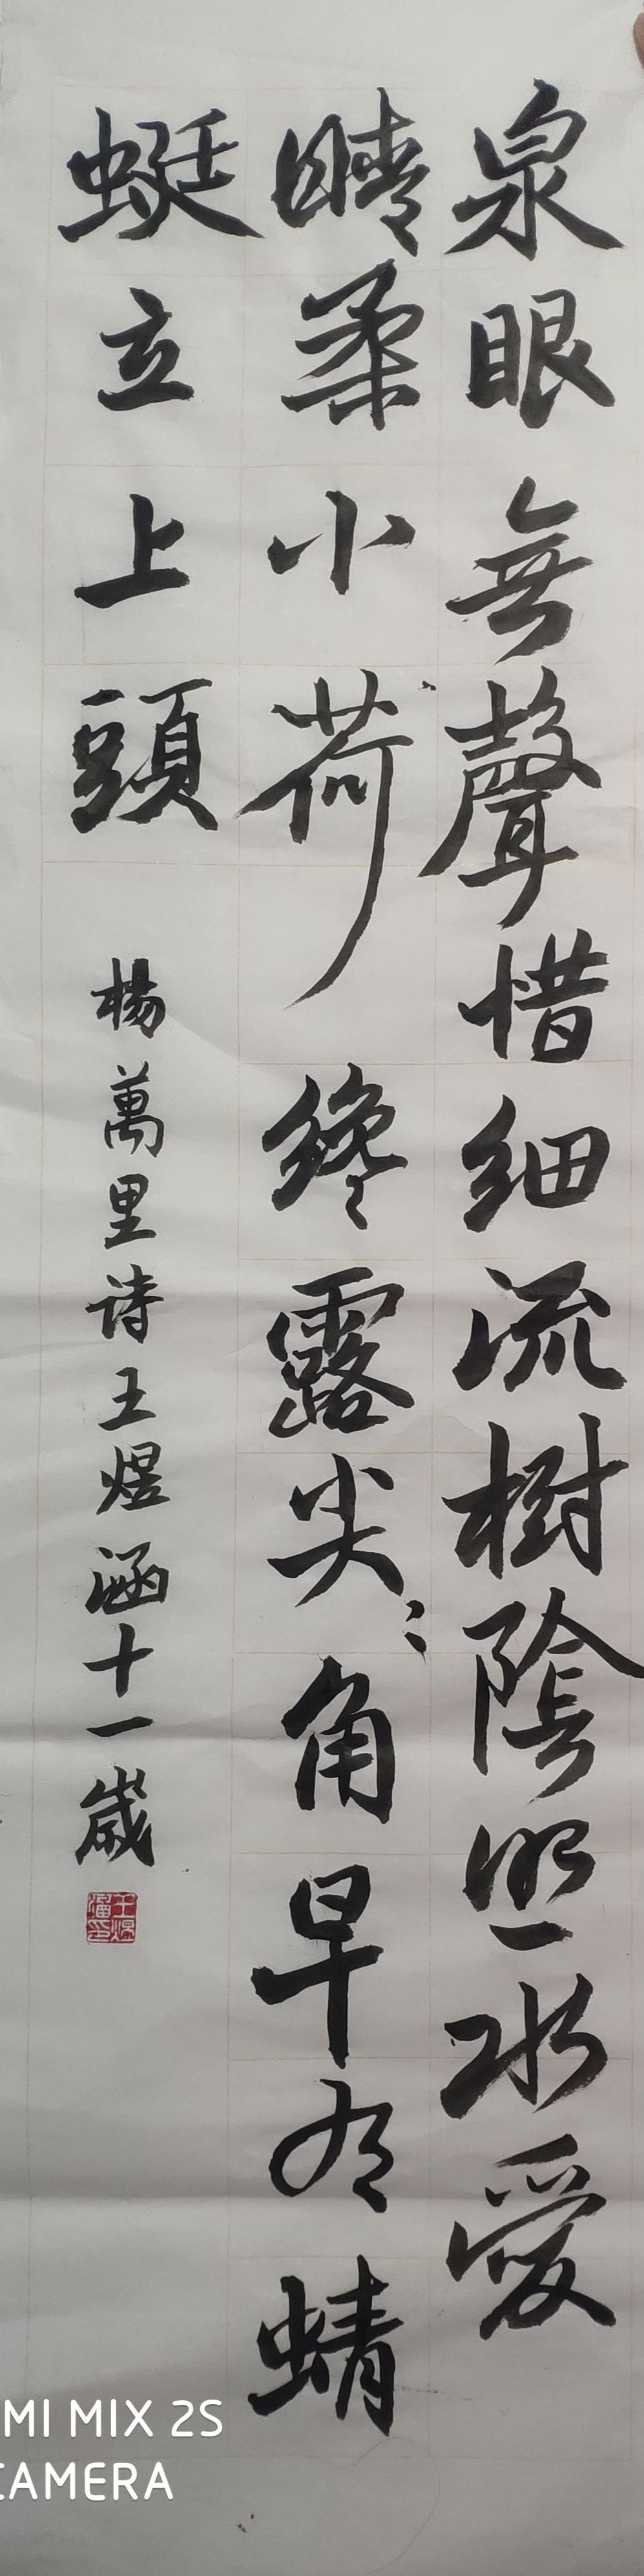 泉眼無聲惜細流樹陰照水愛
晴柔小荷纔露尖尖角早有蜻
蜓立上頭
楊萬里诗王煜涵十一歲
王煜涵印
MI MIX 2S
CAMERA